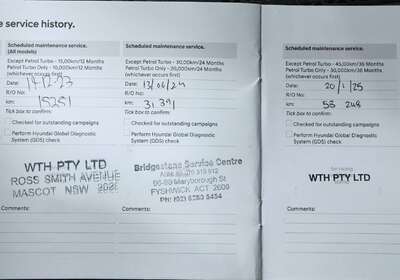 e service history.
Scheduled maintenance service.
(All models)
Except Petrol Turbo - 15,000km/12 Months
Petrol Turbo Only - 10,000km/12 Months
(whichever occurs first)
Date: 14-12-23
R/O No:
km: 15251
Tick box to confirm:
Checked for outstanding campaigns
Perform Hyundai Global Diagnostic
System (GDS) check
WTH PTY LTD
ROSS SMITH AVENUE
MASCOT NSW 2020
Comments:
Scheduled maintenance service.
Except Petrol Turbo - 30,000km/24 Months
Petrol Turbo Only - 20,000km/24 Months
(whichever occurs first)
Date: 13/06/24
R/O No:
km: 31391
Tick box to confirm:
Checked for outstanding campaigns
Perform Hyundai Global Diagnostic
System (GDS) check
Bridgestone Service Centre
Maryborough St
FYSHWICK ACT 2609
PH: (02) 6280 5454
Comments:
Scheduled maintenance service.
Except Petrol Turbo - 45,000km/36 Months
Petrol Turbo Only - 30,000km/36 Months
(whichever occurs first)
Date: 20/1/25
R/O No:
km: 58 248
Tick box to confirm:
Checked for outstanding campaigns
Perform Hyundai Global Diagnostic
System (GDS) check
WTH PTY LTD
Comments: